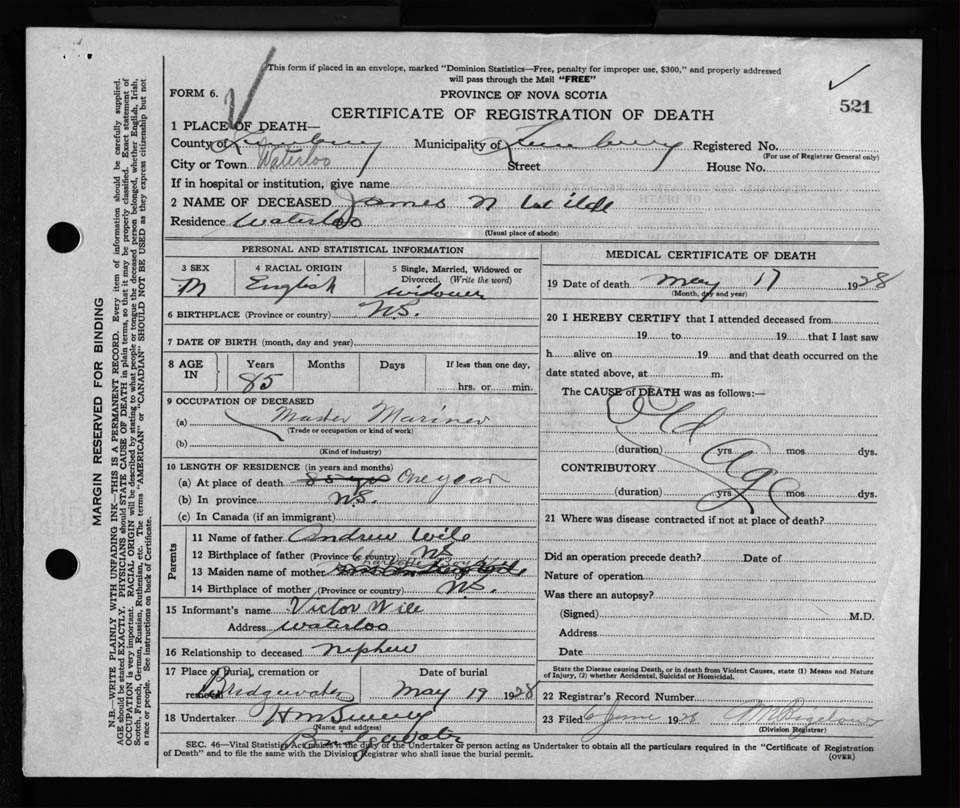 This form if placed in an envelope, marked "Dominion Statistics—Free, penalty for improper use, $300," and properly addressed
will pass through the Mail "FREE"
FORM 6.
PROVINCE OF NOVA SCOTIA
521
CERTIFICATE OF REGISTRATION OF DEATH
1 PLACE OF DEATH—
County of Lunenburg Municipality of Lunenburg Registered No.
(For use of Registrar General only)
City or Town Waterloo Street House No.
If in hospital or institution, give name
2 NAME OF DECEASED James N Wile
Residence Waterloo
(Usual place of abode)
PERSONAL AND STATISTICAL INFORMATION
3 SEX 4 RACIAL ORIGIN 5 Single, Married, Widowed or
Divorced, (Write the word)
M English Widower
6 BIRTHPLACE (Province or country) N.S.
7 DATE OF BIRTH (month, day and year)
8 AGE IN Years Months Days If less than one day,
85 hrs. or min.
9 OCCUPATION OF DECEASED
(a) Master Mariner
(Trade or occupation or kind of work)
(b)
(Kind of industry)
10 LENGTH OF RESIDENCE (in years and months)
(a) At place of death 85 yrs One year
(b) In province N.S.
(c) In Canada (if an immigrant)
Parents
11 Name of father Andrew Wile
12 Birthplace of father (Province or country) NS
13 Maiden name of mother
14 Birthplace of mother (Province or country) N.S.
15 Informant's name Victor Wile
Address Waterloo
16 Relationship to deceased nephew
17 Place of Burial, cremation or Date of burial
removal Bridgewater May 19 1928
18 Undertaker H M
(Name and address)
Bridgewater
MEDICAL CERTIFICATE OF DEATH
19 Date of death May 17 1928
(Month, day and year)
20 I HEREBY CERTIFY that I attended deceased from
19 to 19 that I last saw
h alive on 19 and that death occurred on the
date stated above, at m.
The CAUSE of DEATH was as follows:—
Old
(duration) yrs. mos dys.
Age
CONTRIBUTORY
(duration) yrs mos dys.
21 Where was disease contracted if not at place of death?
Did an operation precede death? Date of
Nature of operation
Was there an autopsy?
(Signed) M.D.
Address
Date
State the Disease causing Death, or in death from Violent Causes, state (1) Means and Nature
of Injury, (2) whether Accidental, Suicidal or Homicidal.
22 Registrar's Record Number
23 Filed 6 June 1928
(Division Registrar)
SEC. 46—Vital Statistics Act makes it the duty of the Undertaker or person acting as Undertaker to obtain all the particulars required in the "Certificate of Registration
of Death" and to file the same with the Division Registrar who shall issue the burial permit.
(OVER)
MARGIN RESERVED FOR BINDING
N.B.—WRITE PLAINLY WITH UNFADING INK—THIS IS A PERMANENT RECORD. Every item of information should be carefully supplied.
AGE should be stated EXACTLY. PHYSICIANS should STATE CAUSE OF DEATH in plain terms, so that it may be properly classified. Exact statement of
OCCUPATION is very important. RACIAL ORIGIN will be described by stating to what people or tongue the deceased person belonged, whether English, Irish,
Scotch, French, German, Russian, Ruthenian, etc. The terms "AMERICAN" or "CANADIAN" SHOULD NOT BE USED as they express citizenship but not
a race or people. See instructions on back of Certificate.